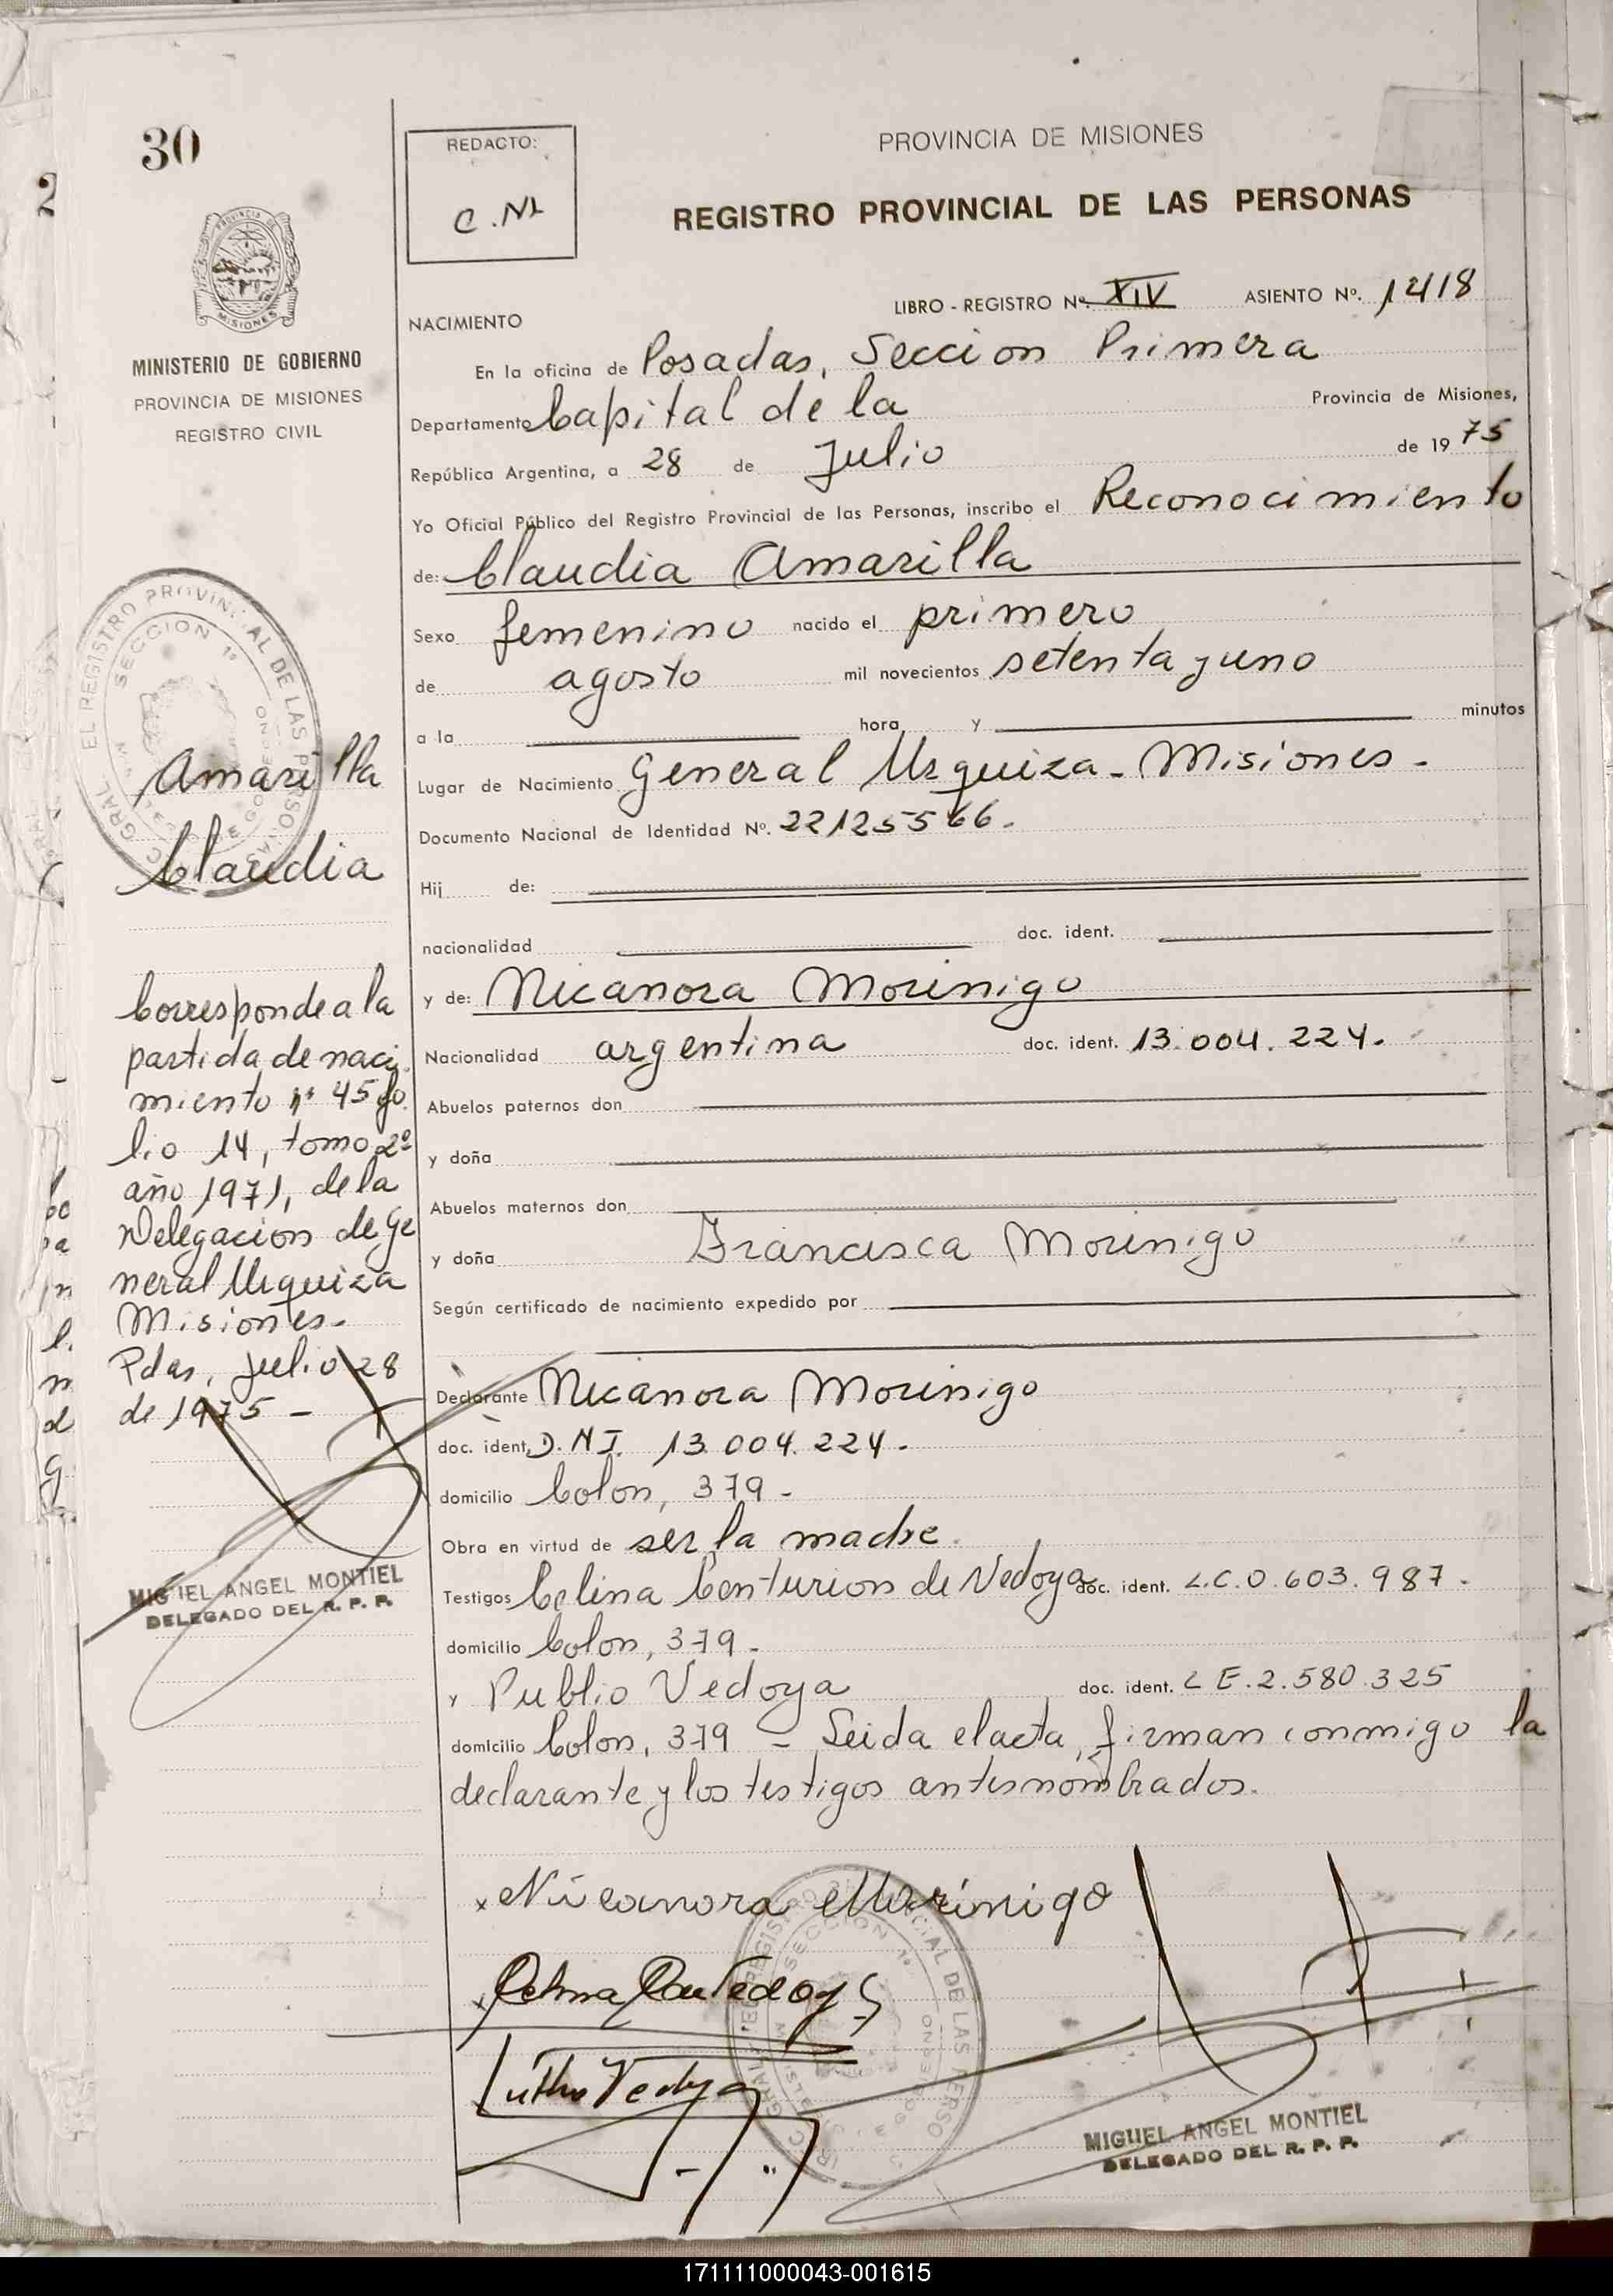 30
REDACTO:
C. NL
PROVINCIA DE MISIONES
REGISTRO PROVINCIAL DE LAS PERSONAS
LIBRO - REGISTRO Nº. XIV ASIENTO Nº. 1418
PROVINCIA DE
MISIONES
MINISTERIO DE GOBIERNO
PROVINCIA DE MISIONES
REGISTRO CIVIL
NACIMIENTO
En la oficina de Posadas, Seccion Primera
Departamento Capital de la Provincia de Misiones,
República Argentina, a 28 de Julio de 1975
Yo Oficial Público del Registro Provincial de las Personas, inscribo el Reconocimiento
de: Claudia Amarilla
Sexo femenino nacido el primero
de agosto mil novecientos setenta y uno
a la hora y minutos
Lugar de Nacimiento General Urquiza - Misiones -
Documento Nacional de Identidad Nº. 22125566.
Hij de:
nacionalidad doc. ident.
y de: Nicanora Morinigo
Nacionalidad argentina doc. ident. 13.004.224.
Abuelos paternos don
y doña
Abuelos maternos don
y doña Francisca Morinigo
Según certificado de nacimiento expedido por
Declarante Nicanora Morinigo
doc. ident. D.N.I. 13.004.224.
domicilio Colon, 379 -
Obra en virtud de ser la madre.
Testigos Celina Centurion de Vedoya doc. ident. L.C.0.603.987.
domicilio Colon, 379 -
y Publio Vedoya doc. ident. L E.2.580.325
domicilio Colon, 379 - Leida el acta, firman conmigo la
declarante y los testigos antesnombrados.
Amarilla
Claudia
Corresponde a la
partida de naci
miento nº 45 fo
lio 14, tomo 2º
año 1971, de la
Delegacion de Ge
neral Urquiza
Misiones.
Pdas, julio 28
de 1975 -
MIGUEL ANGEL MONTIEL
DELEGADO DEL R. P. P.
x Nicanora Morinigo
MIGUEL ANGEL MONTIEL
DELEGADO DEL R. P. P.
171111000043-001615